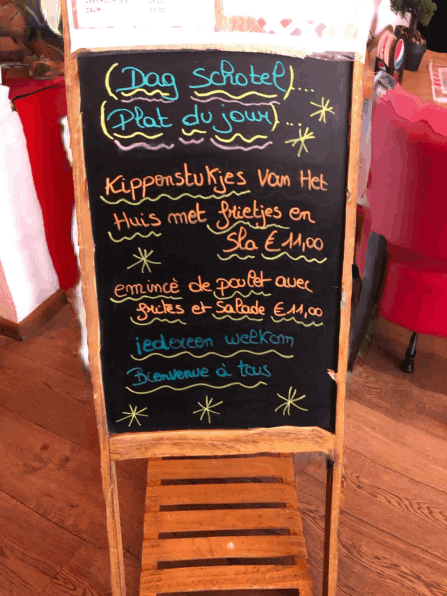 (Dag schotel)...
(Plat du jour)...
Kippenstukjes Van Het
Huis met frietjes en
Sla €11,00
emincè de poulet avec
frites et Salade €11,00
iedereen welkom
Bienvenue à tous